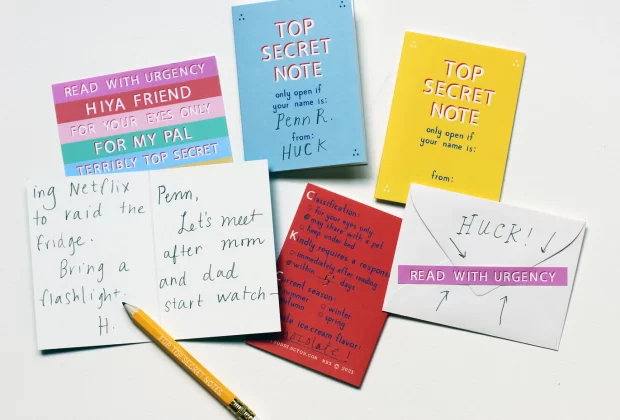 READ WITH URGENCY
HIYA FRIEND
FOR YOUR EYES ONLY
FOR MY PAL
TERRIBLY TOP SECRET
TOP
SECRET
NOTE
only open if
your name is:
Penn R.
from:
HUCK
TOP
SECRET
NOTE
only open if
your name is:
from:
ing Netflix
to raid the
fridge.
Bring a
flashlight.
H.
Penn,
Let's meet
after mom
and dad
start watch-
FOR TOP SECRET NOTES
Classification:
for your eyes only
may share with a pet
keep under bed
Kindly requires a response
immediately after reading
within days
Current season:
summer winter
autumn spring
ice cream flavor:
chocolate!
2021
HUCK!
READ WITH URGENCY